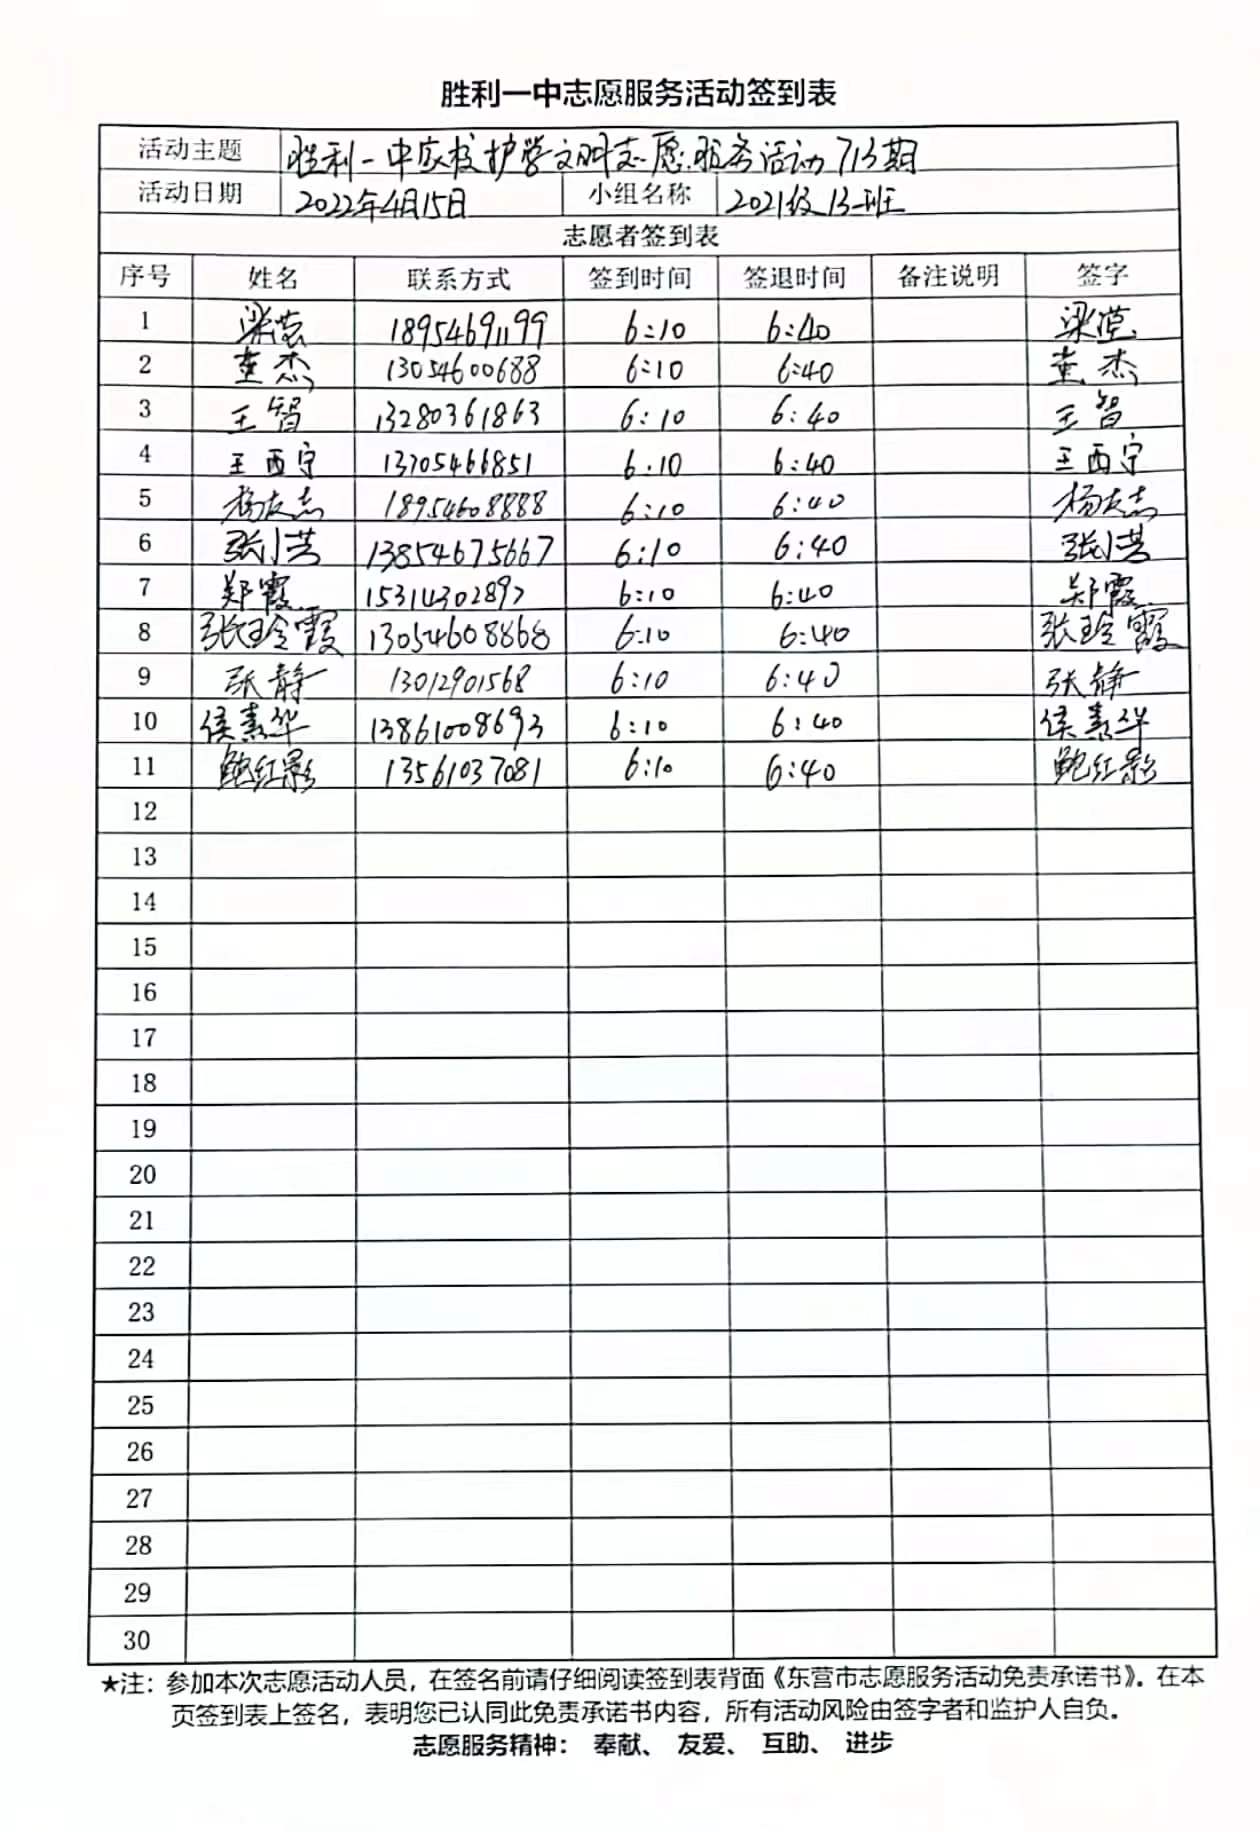 胜利一中志愿服务活动签到表
活动主题 胜利一中家校护学文明志愿服务活动713期
活动日期 2022年4月15日 小组名称 2021级13班
志愿者签到表
序号 姓名 联系方式 签到时间 签退时间 备注说明 签字
1 梁莹 18954691199 6:10 6:40 梁莹
2 董杰 13054600688 6:10 6:40 董杰
3 王智 13280361863 6:10 6:40 王智
4 王西宁 13705466851 6:10 6:40 王西宁
5 杨友志 18954608888 6:10 6:40 杨友志
6 张小芸 13854675667 6:10 6:40 张小芸
7 郑霞 15314302897 6:10 6:40 郑霞
8 张玲霞 13054608868 6:10 6:40 张玲霞
9 张静 13012901568 6:10 6:40 张静
10 侯素华 13861008693 6:10 6:40 侯素华
11 鲍红影 13561037081 6:10 6:40 鲍红影
12
13
14
15
16
17
18
19
20
21
22
23
24
25
26
27
28
29
30
★注：参加本次志愿活动人员，在签名前请仔细阅读签到表背面《东营市志愿服务活动免责承诺书》。在本
页签到表上签名，表明您已认同此免责承诺书内容，所有活动风险由签字者和监护人自负。
志愿服务精神： 奉献、 友爱、 互助、 进步